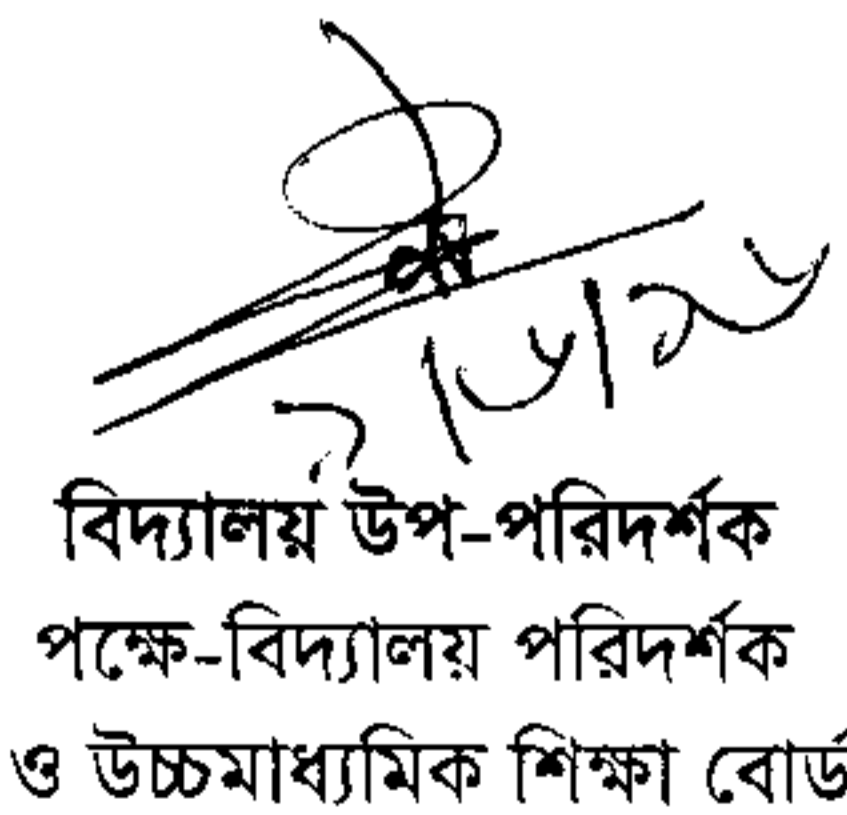 বিদ্যালয় উপ-পরিদর্শক
পক্ষে-বিদ্যালয় পরিদর্শক
ও উচ্চমাধ্যমিক শিক্ষা বোর্ড